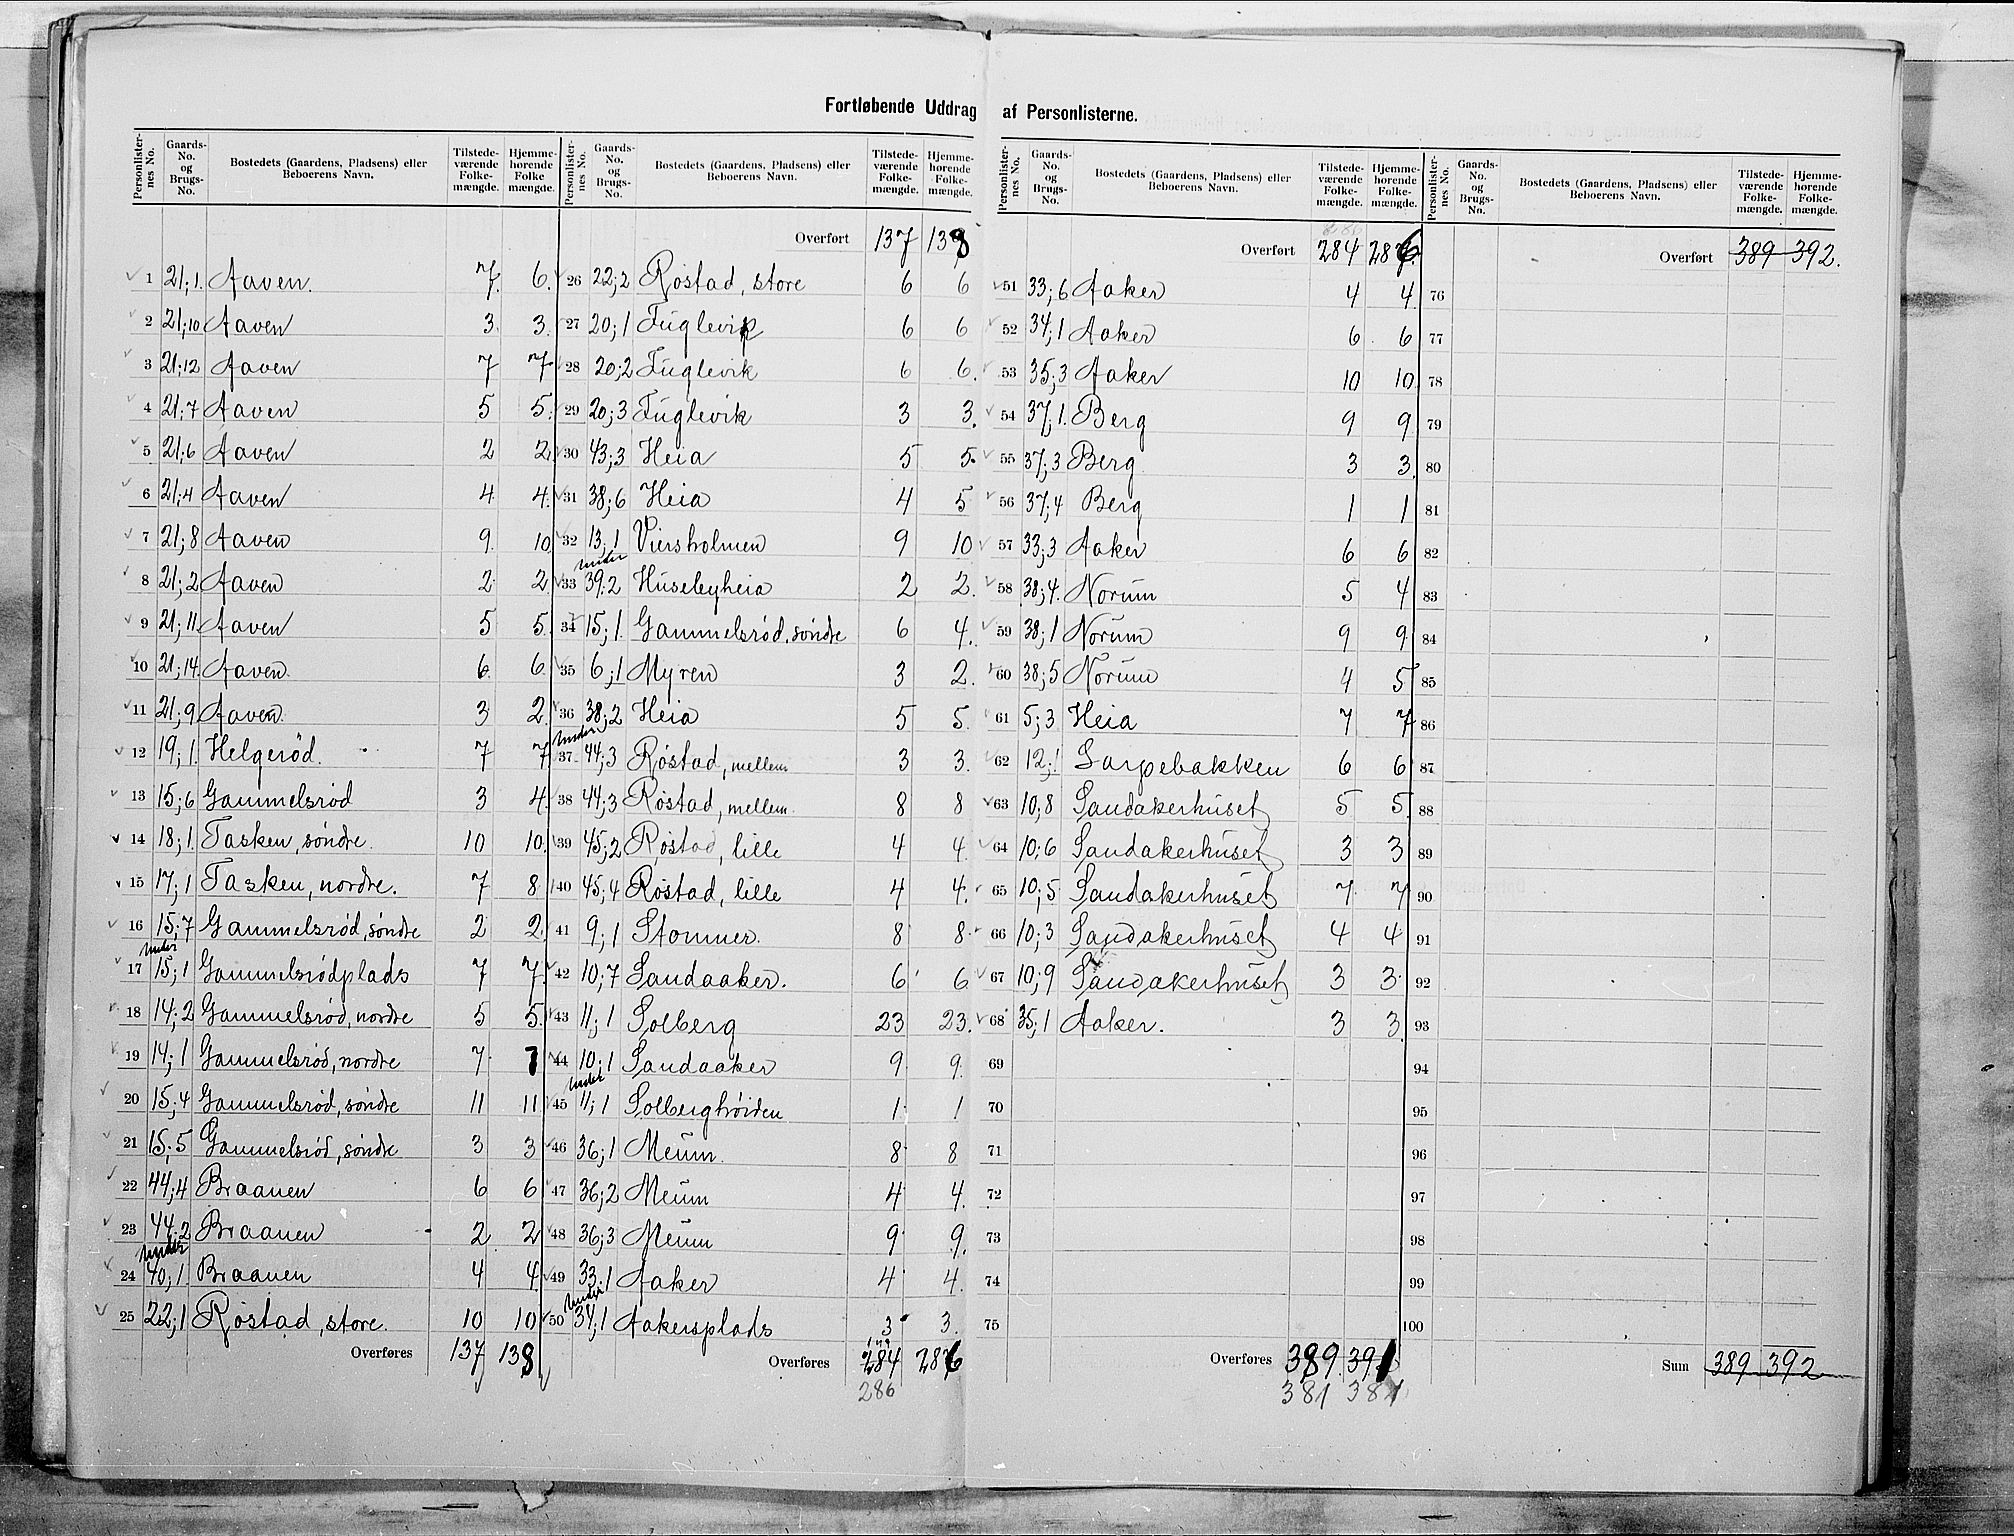 Fortløbende Uddrag af Personlisterne.
Personlisternes No. Gaards-No. og Brugs-No. Bostedets (Gaardens, Pladsens) eller Beboerens Navn. Tilstedeværende Folkemængde. Hjemmehørende Folkemængde.
1 21;1. Aaven. 7. 6.
2 21;10 Aaven 3 3.
3 21;12 Aaven 7 7.
4 21;7 Aaven 5 5.
5 21;6 Aaven 2 2.
6 21;4 Aaven 4 4.
7 21;8 Aaven 9. 10.
8 21;2 Aaven 2 2
9 21;11. Aaven 5 5.
10 21;14. Aaven. 6. 6.
11 21;9. Aaven. 3 2.
12 19;1. Helgerød. 7 7.
13 15;6 Gammelsrød 3 4.
14 18;1. Tasken, søndre. 10 10.
15 17;1 Tasken, nordre. 7 8
16 15;7 Gammelsrød, søndre 2 2
17 under 15;1 Gammelsrødplads 7 7.
18 14;2 Gammelsrød, nordre 5 5.
19 14;1 Gammelsrød, nordre 7 7
20 15;4 Gammelsrød, søndre 11 11
21 15;5 Gammelsrød, søndre 3 3
22 44;4 Braanen 6 6
23 44;2 Braanen 2 2
24 under 40;1 Braanen 4 4.
25 22;1 Røstad, store. 10 10
Overføres 137 138
Personlisternes No. Gaards-No. og Brugs-No. Bostedets (Gaardens, Pladsens) eller Beboerens Navn. Tilstedeværende Folkemængde. Hjemmehørende Folkemængde.
Overført 137 138
26 22;2 Røstad, store 6 6
27 20;1 Fuglevik 6 6
28 20;2 Fuglevik 6 6.
29 20;3 Fuglevik 3 3.
30 43;3 Heia 5 5.
31 38;6 Heia 4 5
32 13;1 Viersholmen 9 10
33 under 39;2 Huselbyheia 2 2.
34 15;1. Gammelsrød, søndre 6 4.
35 6;1 Myren 3 2.
36 38;2 Heia 5 5.
37 under 44;3 Røstad, mellem 3 3.
38 44;3 Røstad, mellem. 8 8
39 45;2 Røstad, lille 4 4.
40 45;4 Røstad, lille 4 4.
41 9;1 Stomner. 8 8.
42 10;7 Sandaaker. 6 6
43 11;1 Solberg 23 23.
44 10;1 Sandaaker 9 9.
45 under 11;1 Solberghøiden 1 1
46 36;1 Meum. 8 8
47 36;2 Meum 4 4.
48 36;3 Meum 9 9.
49 33;1 Aaker 4 4.
50 under 34;1 Aakersplads 3 3.
Overføres 284 286
286
Personlisternes No. Gaards-No. og Brugs-No. Bostedets (Gaardens, Pladsens) eller Beboerens Navn. Tilstedeværende Folkemængde. Hjemmehørende Folkemængde.
286
Overført 284 286
51 33;6 Aaker 4 4.
52 34;1 Aaker 6 6
53 35;3 Aaker 10 10.
54 37;1. Berg 9 9
55 37;3 Berg 3 3.
56 37;4 Berg 1 1
57 33;3 Aaker 6 6
58 38;4. Norum 5 4
59 38;1 Norum 9 9
60 38;5 Norum 4 5
61 5;3 Heia 7 7
62 12;1 Sarpebakken 6 6
63 10;8 Sandakerhuset 5 5
64 10;6 Sandakerhuset 3 3
65 10;5 Sandakerhuset 7 7
66 10;3 Sandakerhuset 4 4
67 10;9 Sandakerhuset 3 3.
68 35;1 Aaker. 3 3.
69
70
71
72
73
74
75
Overføres 389 391
381 387
Personlisternes No. Gaards-No. og Brugs-No. Bostedets (Gaardens, Pladsens) eller Beboerens Navn. Tilstedeværende Folkemængde. Hjemmehørende Folkemængde.
Overført 389 392.
76
77
78
79
80
81
82
83
84
85
86
87
88
89
90
91
92
93
94
95
96
97
98
99
100
Sum 389 392